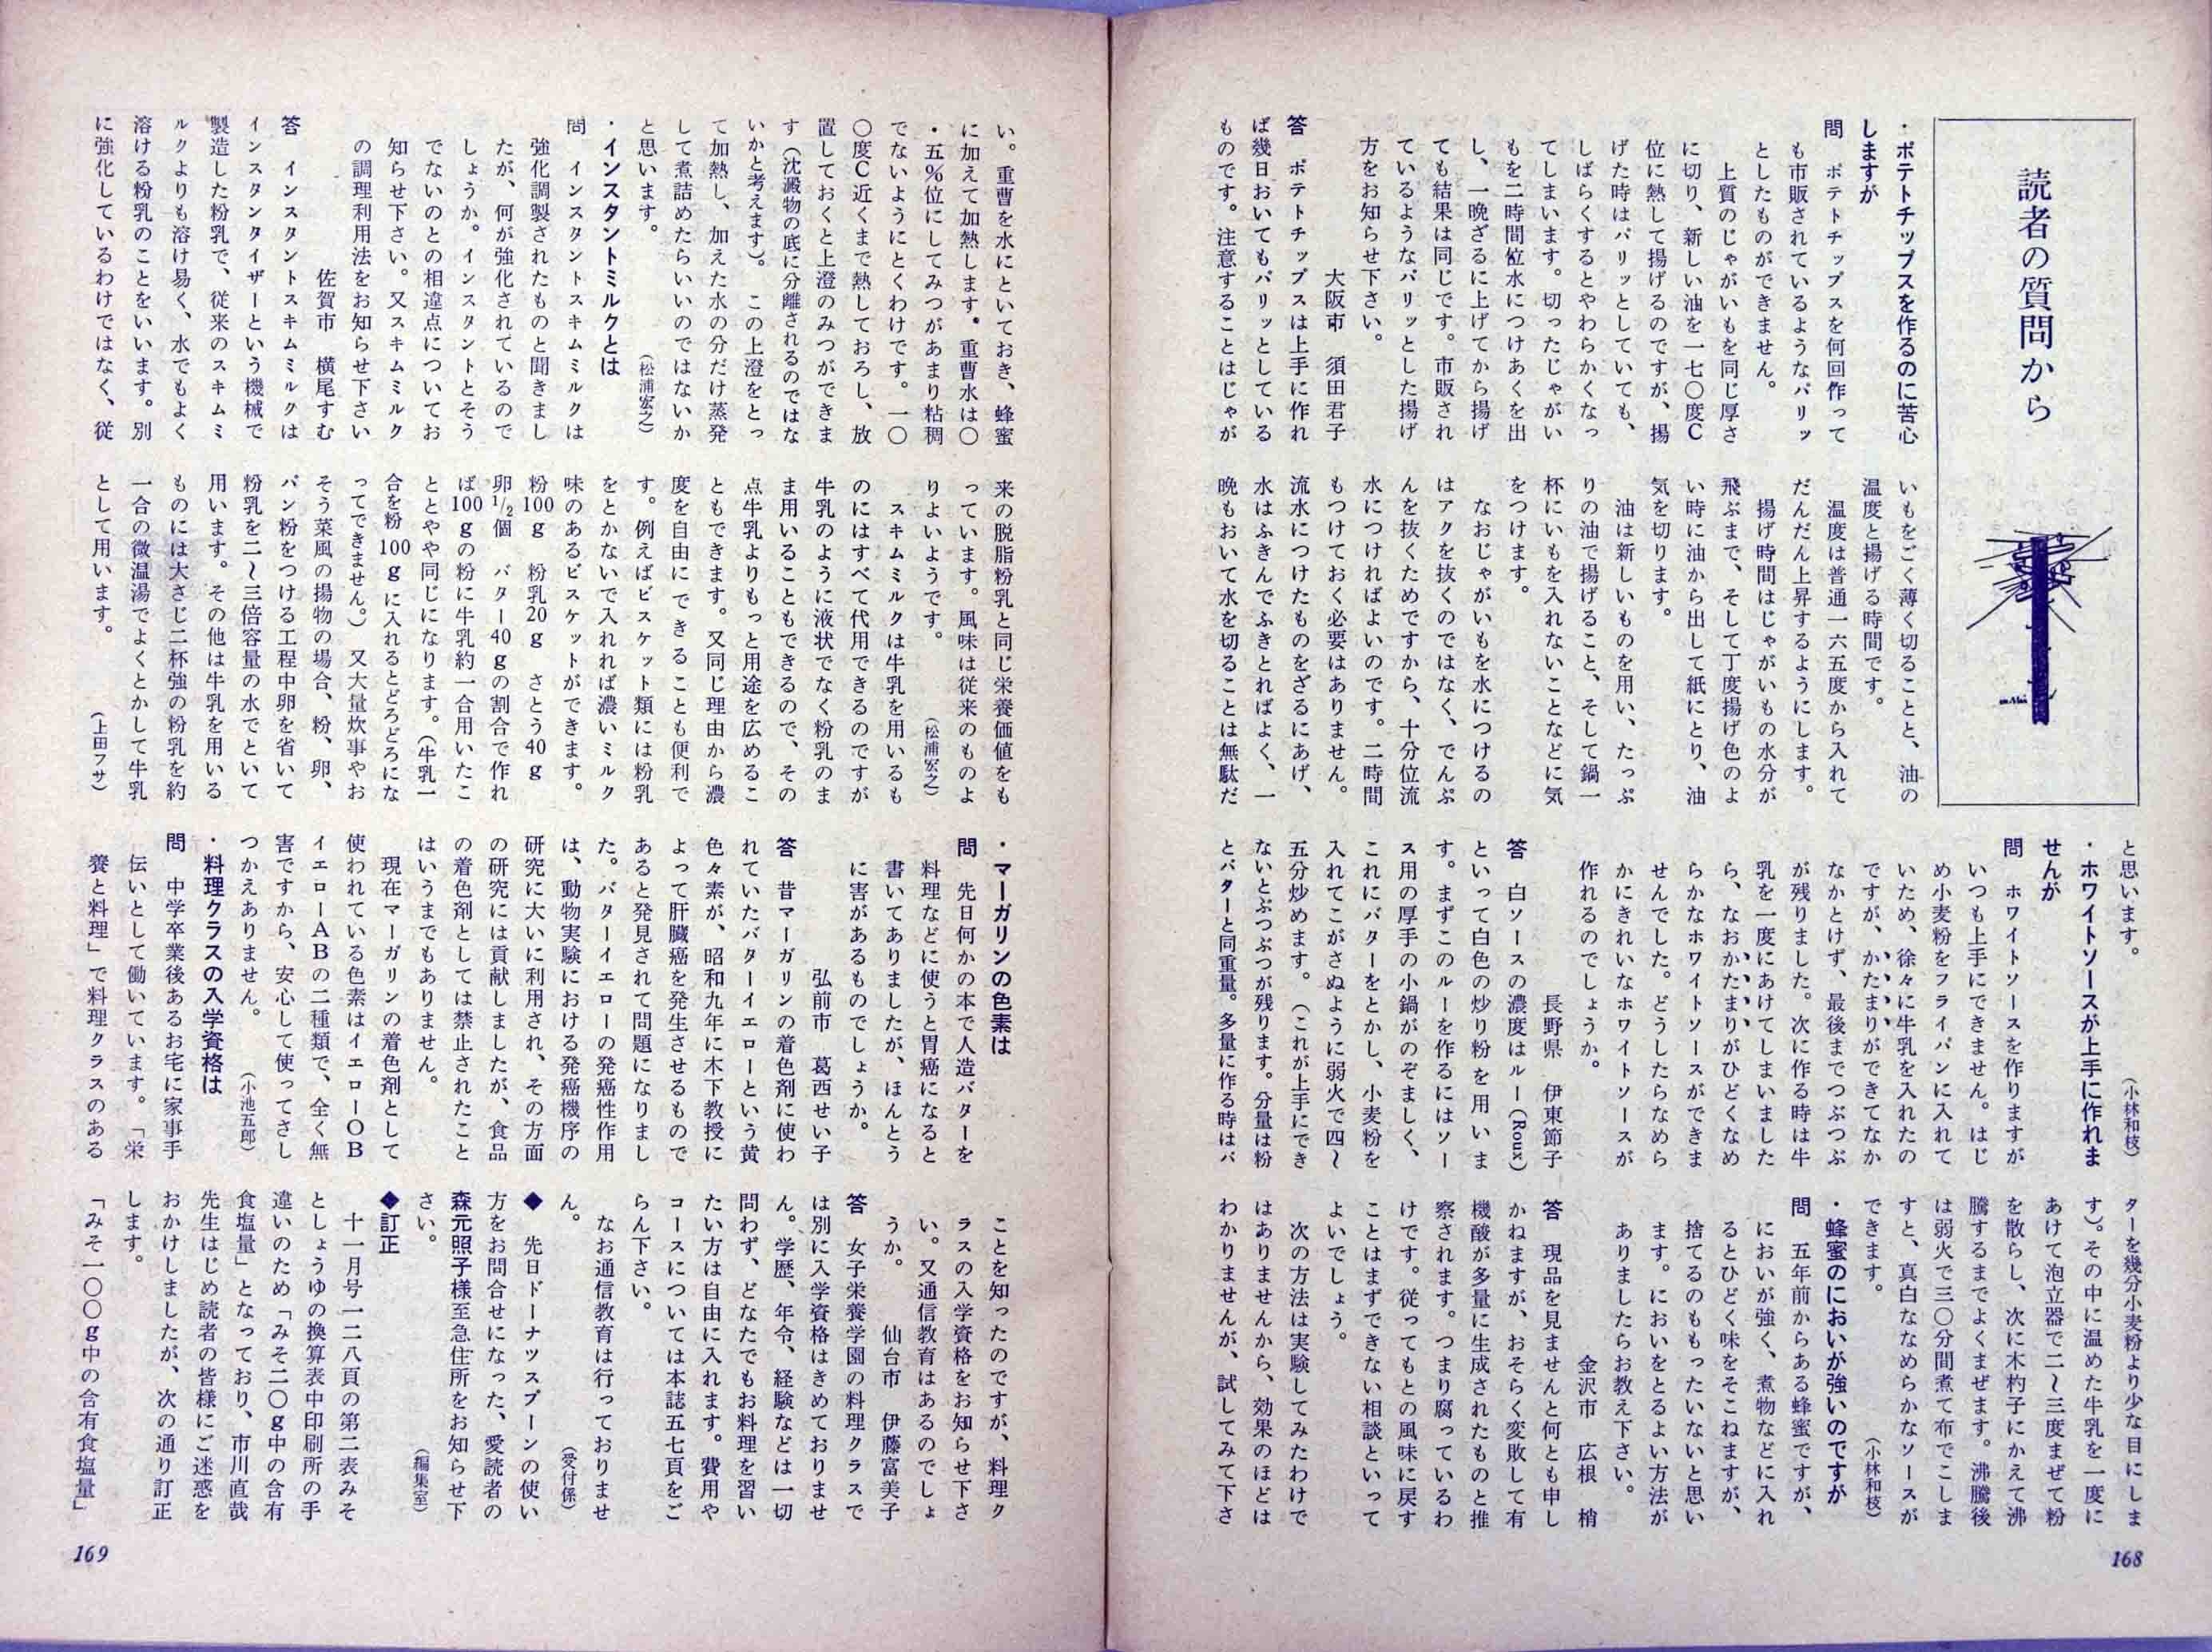 読者の質問から
・ポテトチップスを作るのに苦心
しますが
問　ポテトチップスを何回作って
も市販されているようなパリッ
としたものができません。
上質のじゃがいもを同じ厚さ
に切り、新しい油を一七〇度C
位に熱して揚げるのですが、揚
げた時はパリッとしていても、
しばらくするとやわらかくなっ
てしまいます。切ったじゃがい
もを二時間位水につけあくを出
し、一晩ざるに上げてから揚げ
ても結果は同じです。市販され
ているようなパリッとした揚げ
方をお知らせ下さい。
大阪市　須田君子
答　ポテトチップスは上手に作れ
ば幾日おいてもパリッとしている
ものです。注意することはじゃが
いもをごく薄く切ることと、油の
温度と揚げる時間です。
温度は普通一六五度から入れて
だんだん上昇するようにします。
揚げ時間はじゃがいもの水分が
飛ぶまで、そして丁度揚げ色のよ
い時に油から出して紙にとり、油
気を切ります。
油は新しいものを用い、たっぷ
りの油で揚げること、そして鍋一
杯にいもを入れないことなどに気
をつけます。
なおじゃがいもを水につけるの
はアクを抜くのではなく、でんぷ
んを抜くためですから、十分位流
水につければよいのです。二時間
もつけておく必要はありません。
流水につけたものをざるにあげ、
水はふきんでふきとればよく、一
晩もおいて水を切ることは無駄だ
と思います。
（小林和枝）
・ホワイトソースが上手に作れま
せんが
問　ホワイトソースを作りますが
いつも上手にできません。はじ
め小麦粉をフライパンに入れて
いため、徐々に牛乳を入れたの
ですが、かたまりができてなか
なかとけず、最後までつぶつぶ
が残りました。次に作る時は牛
乳を一度にあけてしまいました
ら、なおかたまりがひどくなめ
らかなホワイトソースができま
せんでした。どうしたらなめら
かにきれいなホワイトソースが
作れるのでしょうか。
長野県　伊東節子
答　白ソースの濃度はルー(Roux)
といって白色の炒り粉を用いま
す。まずこのルーを作るにはソー
ス用の厚手の小鍋がのぞましく、
これにバターをとかし、小麦粉を
入れてこがさぬように弱火で四〜
五分炒めます。（これが上手にでき
ないとぶつぶつが残ります。分量は粉
とバターと同重量。多量に作る時はバ
ターを幾分小麦粉より少な目にしま
す）。その中に温めた牛乳を一度に
あけて泡立器で二〜三度まぜて粉
を散らし、次に木杓子にかえて沸
騰するまでよくまぜます。沸騰後
は弱火で三〇分間煮て布でこしま
すと、真白ななめらかなソースが
できます。
（小林和枝）
・蜂蜜のにおいが強いのですが
問　五年前からある蜂蜜ですが、
においが強く、煮物などに入れ
るとひどく味をそこねますが、
捨てるのももったいないと思い
ます。においをとるよい方法が
ありましたらお教え下さい。
金沢市　広根　梢
答　現品を見ませんと何とも申し
かねますが、おそらく変敗して有
機酸が多量に生成されたものと推
察されます。つまり腐っているわ
けです。従ってもとの風味に戻す
ことはまずできない相談といって
よいでしょう。
次の方法は実験してみたわけで
はありませんから、効果のほどは
わかりませんが、試してみて下さ
168
い。重曹を水にといておき、蜂蜜
に加えて加熱します。重曹水は〇
・五%位にしてみつがあまり粘稠
でないようにとくわけです。一〇
〇度C近くまで熱しておろし、放
置しておくと上澄のみつができま
す（沈澱物の底に分離されるのではな
いかと考えます）。この上澄をとっ
て加熱し、加えた水の分だけ蒸発
して煮詰めたらいいのではないか
と思います。
（松浦宏之）
・インスタントミルクとは
問　インスタントスキムミルクは
強化調製されたものと聞きまし
たが、何が強化されているので
しょうか。インスタントとそう
でないのとの相違点についてお
知らせ下さい。又スキムミルク
の調理利用法をお知らせ下さい
佐賀市　横尾すむ
答　インスタントスキムミルクは
インスタンタイザーという機械で
製造した粉乳で、従来のスキムミ
ルクよりも溶け易く、水でもよく
溶ける粉乳のことをいいます。別
に強化しているわけではなく、従
来の脱脂粉乳と同じ栄養価値をも
っています。風味は従来のものよ
りよいようです。
（松浦宏之）
スキムミルクは牛乳を用いるも
のにはすべて代用できるのですが
牛乳のように液状でなく粉乳のま
ま用いることもできるので、その
点牛乳よりもっと用途を広めるこ
ともできます。又同じ理由から濃
度を自由にできることも便利で
す。例えばビスケット類には粉乳
をとかないで入れれば濃いミルク
味のあるビスケットができます。
粉100g　粉乳20g　さとう40g
卵1/2個　バター40gの割合で作れ
ば100gの粉に牛乳約一合用いたこ
ととやや同じになります。（牛乳一
合を粉100gに入れるとどろどろにな
ってできません。）又大量炊事やお
そう菜風の揚物の場合、粉、卵、
パン粉をつける工程中卵を省いて
粉乳を二〜三倍容量の水でといて
用います。その他は牛乳を用いる
ものには大さじ二杯強の粉乳を約
一合の微温湯でよくとかして牛乳
として用います。
（上田フサ）
・マーガリンの色素は
問　先日何かの本で人造バターを
料理などに使うと胃癌になると
書いてありましたが、ほんとう
に害があるものでしょうか。
弘前市　葛西せい子
答　昔マーガリンの着色剤に使わ
れていたバターイエローという黄
色々素が、昭和九年に木下教授に
よって肝臓癌を発生させるもので
あると発見されて問題になりまし
た。バターイエローの発癌性作用
は、動物実験における発癌機序の
研究に大いに利用され、その方面
の研究には貢献しましたが、食品
の着色剤としては禁止されたこと
はいうまでもありません。
現在マーガリンの着色剤として
使われている色素はイエローOB
イエローABの二種類で、全く無
害ですから、安心して使ってさし
つかえありません。
（小池五郎）
・料理クラスの入学資格は
問　中学卒業後あるお宅に家事手
伝いとして働いています。「栄
養と料理」で料理クラスのある
ことを知ったのですが、料理ク
ラスの入学資格をお知らせ下さ
い。又通信教育はあるのでしょ
うか。
仙台市　伊藤富美子
答　女子栄養学園の料理クラスで
は別に入学資格はきめておりませ
ん。学歴、年令、経験などは一切
問わず、どなたでもお料理を習い
たい方は自由に入れます。費用や
コースについては本誌五七頁をご
らん下さい。
なお通信教育は行っておりませ
ん。
（受付係）
◆　先日ドーナツスプーンの使い
方をお問合せになった、愛読者の
森元照子様至急住所をお知らせ下
さい。
（編集室）
◆訂正
十一月号一二八頁の第二表みそ
としょうゆの換算表中印刷所の手
違いのため「みそ二〇g中の含有
食塩量」となっており、市川直哉
先生はじめ読者の皆様にご迷惑を
おかけしましたが、次の通り訂正
します。
「みそ一〇〇g中の含有食塩量」
169